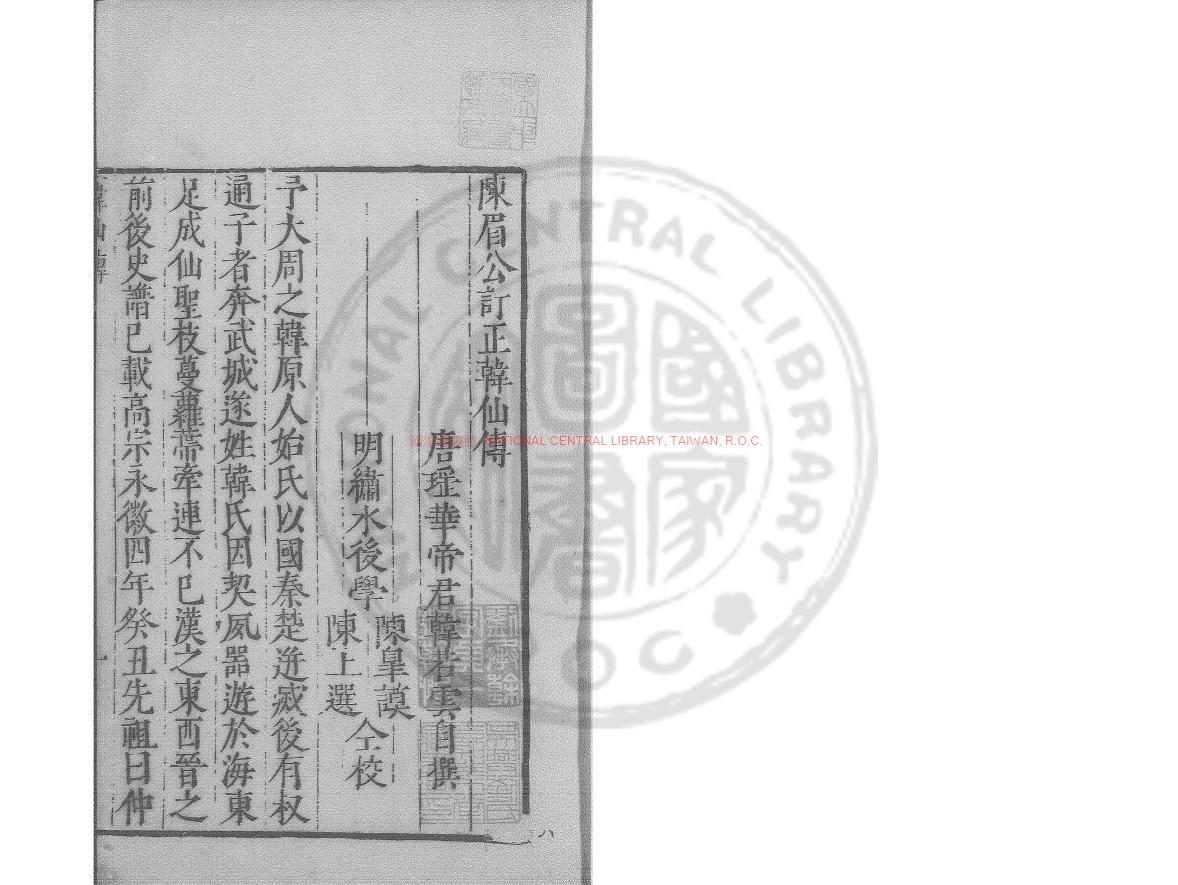 陳眉公訂正韓仙傳
唐瑶華帝君韓若雲自撰
明繡水後學
陳皇謨
陳上選
仝校
予大周之韓原人始氏以國秦楚迸㓕後有权
通子者奔武城遂姓韓氏因契夙器遊於海東
足成仙聖枝蔓蘿蔕牽連不已漢之東西晉之
前後史譜已載高宗永徽四年癸丑先祖曰仲
韓仙傳
一
NATIONAL CENTRAL LIBRARY, TAIWAN, R.O.C.
NATIONAL CENTRAL LIBRARY
R.O.C.
國家圖書館